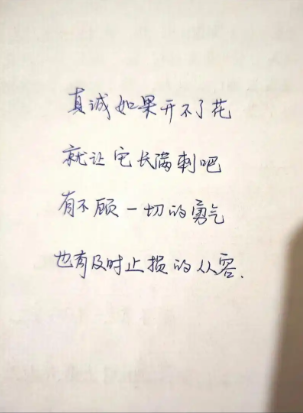 真诚如果开不了花
就让它长满刺吧
有不顾一切的勇气
也有及时止损的从容.